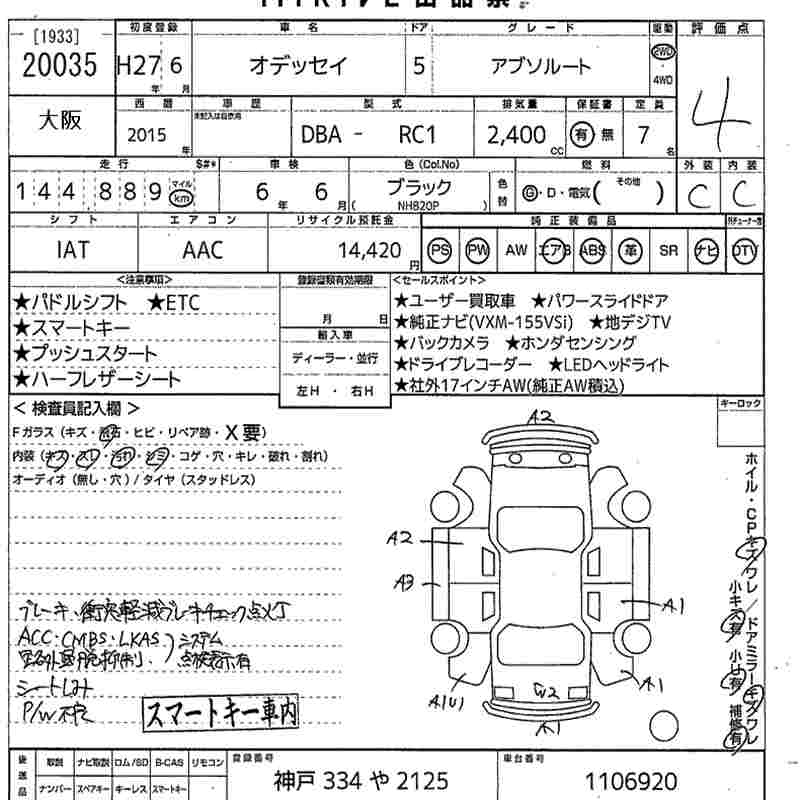 [1933]
20035
初度登録 車名 ドア グレード 駆動 評価点
H27年 6月 オデッセイ 5 アブソルート 2WD 4WD 4
大阪
西暦 車歴 型式 排気量 保証書 定員
2015年 未記入は自家用 DBA - RC1 2,400cc 有 無 7名
走行 $#* 車検 色(Col.No) 燃料 外装 内装
144889 マイル km 6年 6月 ブラック 色替 G・D・電気( その他 ) C C
( NH820P )
シフト エアコン リサイクル預託金 純正装備品
IAT AAC 14,420円 PS PW AW エアB ABS 革 SR ナビ DTV
<注意事項> 登録書類有効期限 <セールスポイント>
★パドルシフト ★ETC
★スマートキー
★プッシュスタート
★ハーフレザーシート
月 日
輸入車
ディーラー・並行
左H ・ 右H
★ユーザー買取車 ★パワースライドドア
★純正ナビ(VXM-155VSi) ★地デジTV
★バックカメラ ★ホンダセンシング
★ドライブレコーダー ★LEDヘッドライト
★社外17インチAW(純正AW積込)
キーロック
< 検査員記入欄 >
Fガラス (キズ・飛石・ヒビ・リペア跡・X要)
内装 (キズ・スレ・汚れ・シミ・コゲ・穴・キレ・破れ・割れ)
オーディオ (無し・穴) / タイヤ (スタッドレス)
A2
A2
A3
A1
A1
W2
A1
ホイル・CPキズワレ/ドアミラーキズワレ
小キズ有 小凹有 補修有
ブレーキ、衝突軽減ブレーキチェック点灯
ACC・CMBS・LKAS
システム
シートしみ
P/W不定
スマートキー車内
後送品 取説 ナビ取説 ロム/SD B-CAS リモコン
ナンバー スペアキー キーレス スマートキー
登録番号
神戸 334 や 2125
車台番号
1106920